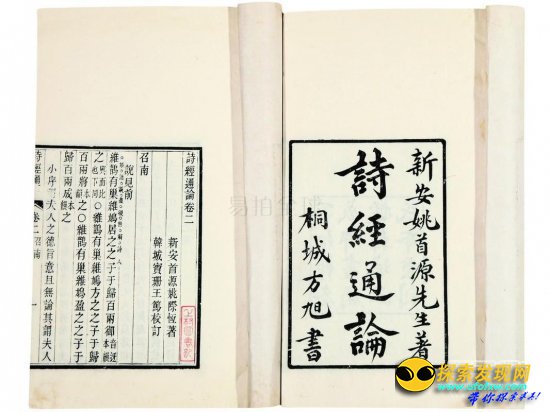 新安姚首源先生著
詩經通論
桐城方旭書
詩經通論卷二
新安首源姚際恆著
韓城寶珊王篤校訂
召南
說見前
維鵲有巢維鳩居之之子于歸百兩御
之
維鵲有巢維鳩方之之子于歸
百兩將之
維鵲有巢維鳩盈之之子于
歸百兩成之
小序謂夫人之德旨意且無論其謂夫人
詩經通論
卷二召南
一
易拍全球
探索发现网
带你探索未知!